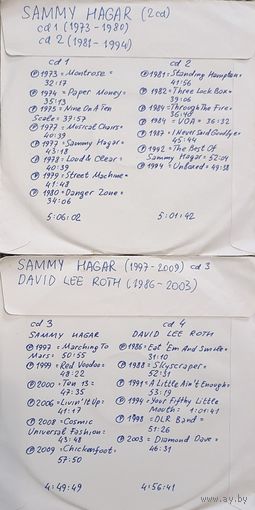 SAMMY HAGAR (2cd)
cd 1 (1973-1980)
cd 2 (1981-1994)
cd 1
Ⓟ 1973 = Montrose =
32:17
Ⓟ 1974 = Paper Money =
35:13
Ⓟ 1975 = Nine On A Ten
Scale = 39:57
Ⓟ 1977 = Musical Chairs =
40:39
Ⓟ 1977 = Sammy Hagar =
43:18
Ⓟ 1978 = Loud & Clear =
40:39
Ⓟ 1979 = Street Machine =
41:48
Ⓟ 1980 = Danger Zone =
34:06
5:06:02
cd 2
Ⓟ 1981 = Standing Hampton =
41:56
Ⓟ 1982 = Three Lock Box =
39:06
Ⓟ 1984 = Through The Fire =
36:40
Ⓟ 1984 = VOA = 36:32
Ⓟ 1987 = I Never Said Goodbye =
45:44
Ⓟ 1992 = The Best Of
Sammy Hagar = 52:04
Ⓟ 1994 = Unboxed = 49:38
5:01:42
SAMMY HAGAR (1997-2009) cd 3
DAVID LEE ROTH (1986-2003)
cd 3
SAMMY HAGAR
Ⓟ 1997 = Marching To
Mars = 50:55
Ⓟ 1999 = Red Voodoo =
48:22
Ⓟ 2000 = Ten 13 =
47:35
Ⓟ 2006 = Livin' It Up =
41:17
Ⓟ 2008 = Cosmic
Universal Fashion =
43:48
Ⓟ 2009 = Chickenfoot =
57:50
4:49:49
cd 4
DAVID LEE ROTH
Ⓟ 1986 = Eat 'Em And Smile =
31:10
Ⓟ 1988 = Skyscraper =
52:31
Ⓟ 1991 = A Little Ain't Enough =
53:19
Ⓟ 1994 = Your Filthy Little
Mouth = 1:01:41
Ⓟ 1998 = DLR Band =
51:26
Ⓟ 2003 = Diamond Dave =
46:31
4:56:41
www.ay.by